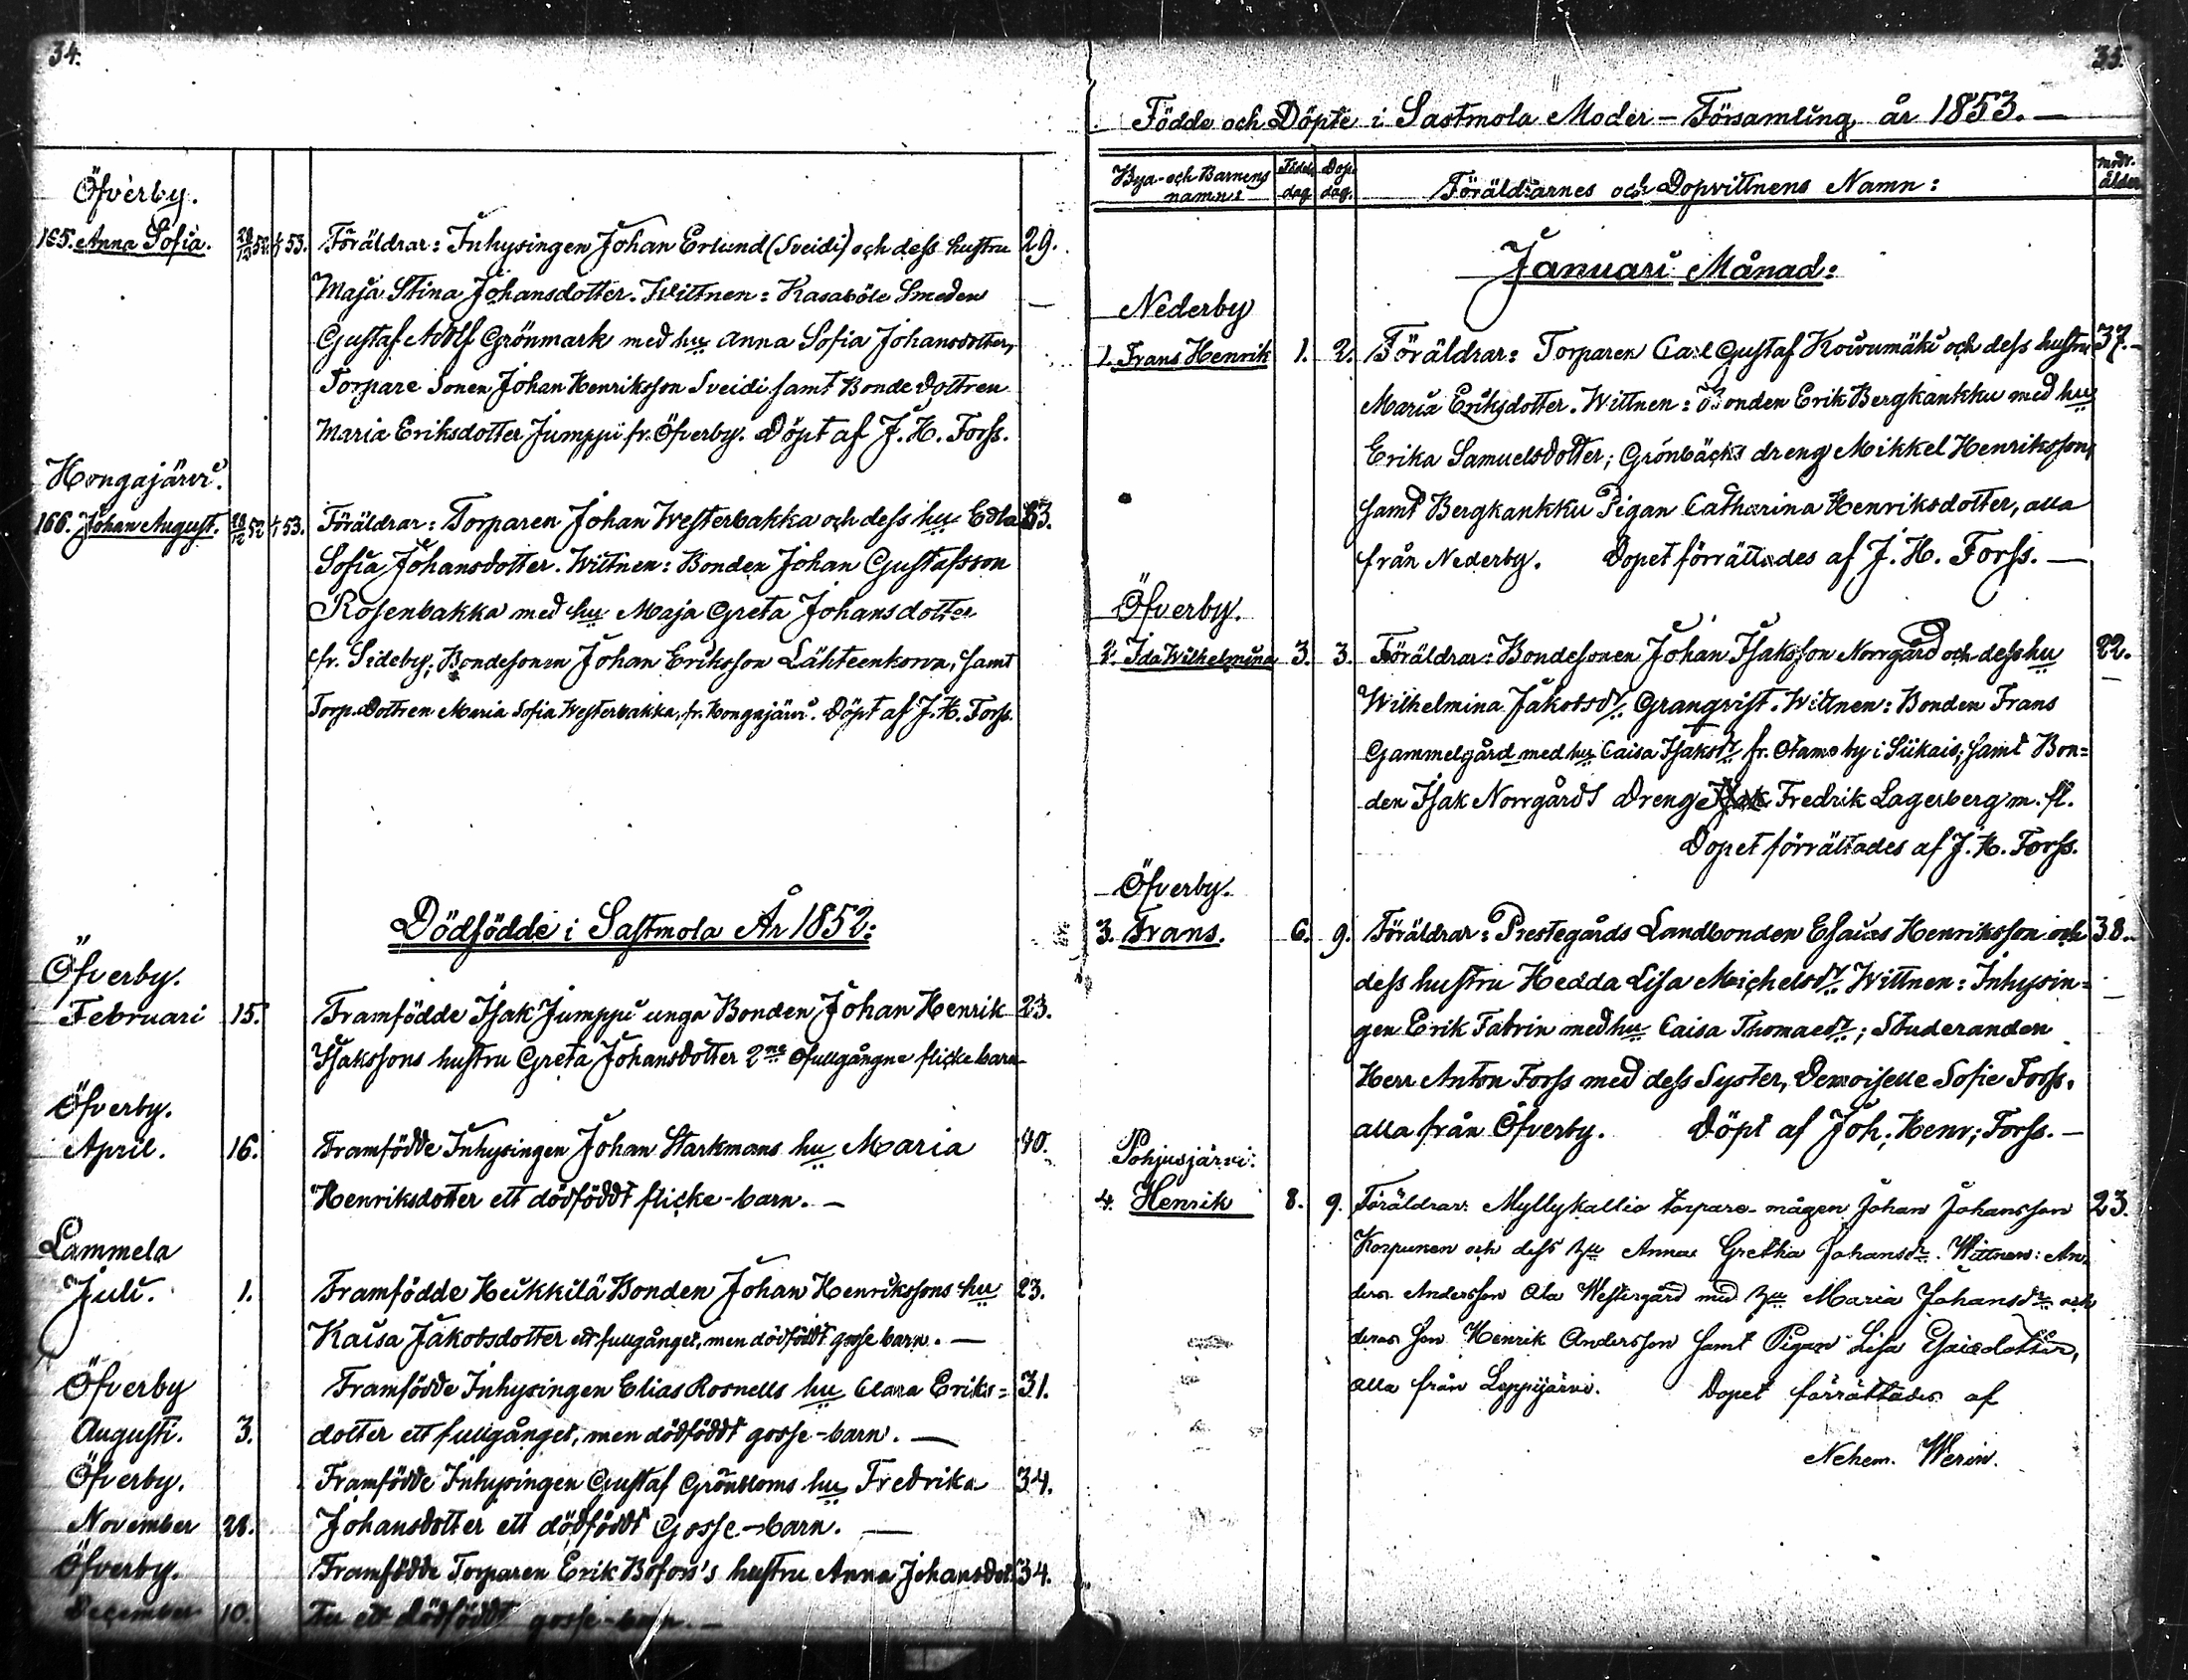 34.
Öfverby.
165. Anna Sofia. 28/12 52. 1/1 53. Föräldrar: Inhysingen Johan Erlund (Sveidi) och dess hustru 29.
Maja Stina Johansdotter. Wittnen: Kasaböle Smeden
Gustaf Adolf Grönmark med hu Anna Sofia Johansdotter,
Torpare Sonen Johan Henriksson Sveidi samt Bonde dottren
Maria Eriksdotter Jumppi fr. Öfverby. Döpt af J. H. Forss.
Hongajärvi.
166. Johan August. 52 1/1 53. Föräldrar: Torparen Johan Westerbakka och dess hu Edla
Sofia Johansdotter. Wittnen: Bonden Johan Gustafsson
Rosenbakka med hu Maja Greta Johansdotter
fr. Sideby; Bondesonen Johan Eriksson Lähteenkorva, samt
Torp.dottren Maria Sofia Westerbakka, fr. Hongajärvi. Döpt af J. H. Forss.
Dödfödde i Sastmola År 1852:
Öfverby.
Februari 15. Framfödde Isak Jumppi unga Bonden Johan Henrik 23.
Isakssons hustru Greta Johansdotter 2ne ofullgångne flickebarn
Öfverby.
April. 16. Framfödde Inhysingen Johan Starkmans hu Maria 40.
Henriksdotter ett dödföddt flicke-barn. —
Lammela
Juli. 1. Framfödde Heikkilä Bonden Johan Henrikssons hu 23.
Kaisa Jakobsdotter ett fullgånget, men dödföddt gosse barn. —
Öfverby Framfödde Inhysingen Elias Rosnells hu Clara Eriks= 31.
Augusti. 3. dotter ett fullgånget, men dödföddt gosse-barn. —
Öfverby. Framfödde Inhysingen Gustaf Grönbloms hu Fredrika 34.
November 28. Johansdotter ett dödföddt Gosse-barn. —
Öfverby. Framfödde Torparen Erik Bofors's hustru Anna Johansdot 34.
December 10. Ter ett dödföddt gosse-barn. —
35.
Födde och Döpte i Sastmola Moder-Församling år 1853. —
Bya- och Barnens namn: Födels dag. Dop. dag. Föräldrarnes och Dopvittnens Namn: modr. ålder
Januari Månad:
Nederby
1. Frans Henrik 1. 2. Föräldrar: Torparen Carl Gustaf Koivumäki och dess hustru 37.
Maria Eriksdotter. Wittnen: Bonden Erik Bergkankku med hu
Erika Samuelsdotter; Grönbäcks dreng Mikkel Henriksson,
samt Bergkankku Pigan Catharina Henriksdotter, alla
från Nederby. Dopet förrättades af J. H. Forss. —
Öfverby.
2. Ida Wilhelmina 3. 3. Föräldrar: Bondesonen Johan Isaksson Norrgård och dess hu 22.
Wilhelmina Jakobsdr Granqvist. Wittnen: Bonden Frans
Gammelgård med hu Caisa Isaksdr fr. Otamo by i Siikais; samt Bon=
den Isak Norrgårds Dreng Fredrik Lagerberg m. fl.
Dopet förrättades af J. H. Forss.
Öfverby.
3. Frans. 6. 9. Föräldrar: Prestegårds Landbonden Esaias Henriksson och 38.
dess hustru Hedda Lisa Meichelsdr. Wittnen: Inhysin=
gen Erik Fabrin med hu Caisa Thomaedr; Studeranden
Herr Anton Forss med dess Syster, Demoiselle Sofie Forss.
alla från Öfverby. Döpt af Joh; Henr; Forss. —
Pohjusjärvi.
4. Henrik 8. 9. Föräldrar: Myllykallio torpare-mågen Johan Johansson 23.
Korpunen och dess hu Anna Gretha Johansdr. Wittnen: An
ders Andersson Ala Westergård med hu Maria Johansdr och
deras son Henrik Andersson samt Pigan Lisa Esaiedotter,
alla från Leppijärvi. Dopet förrättades af
Nehem. Werin.